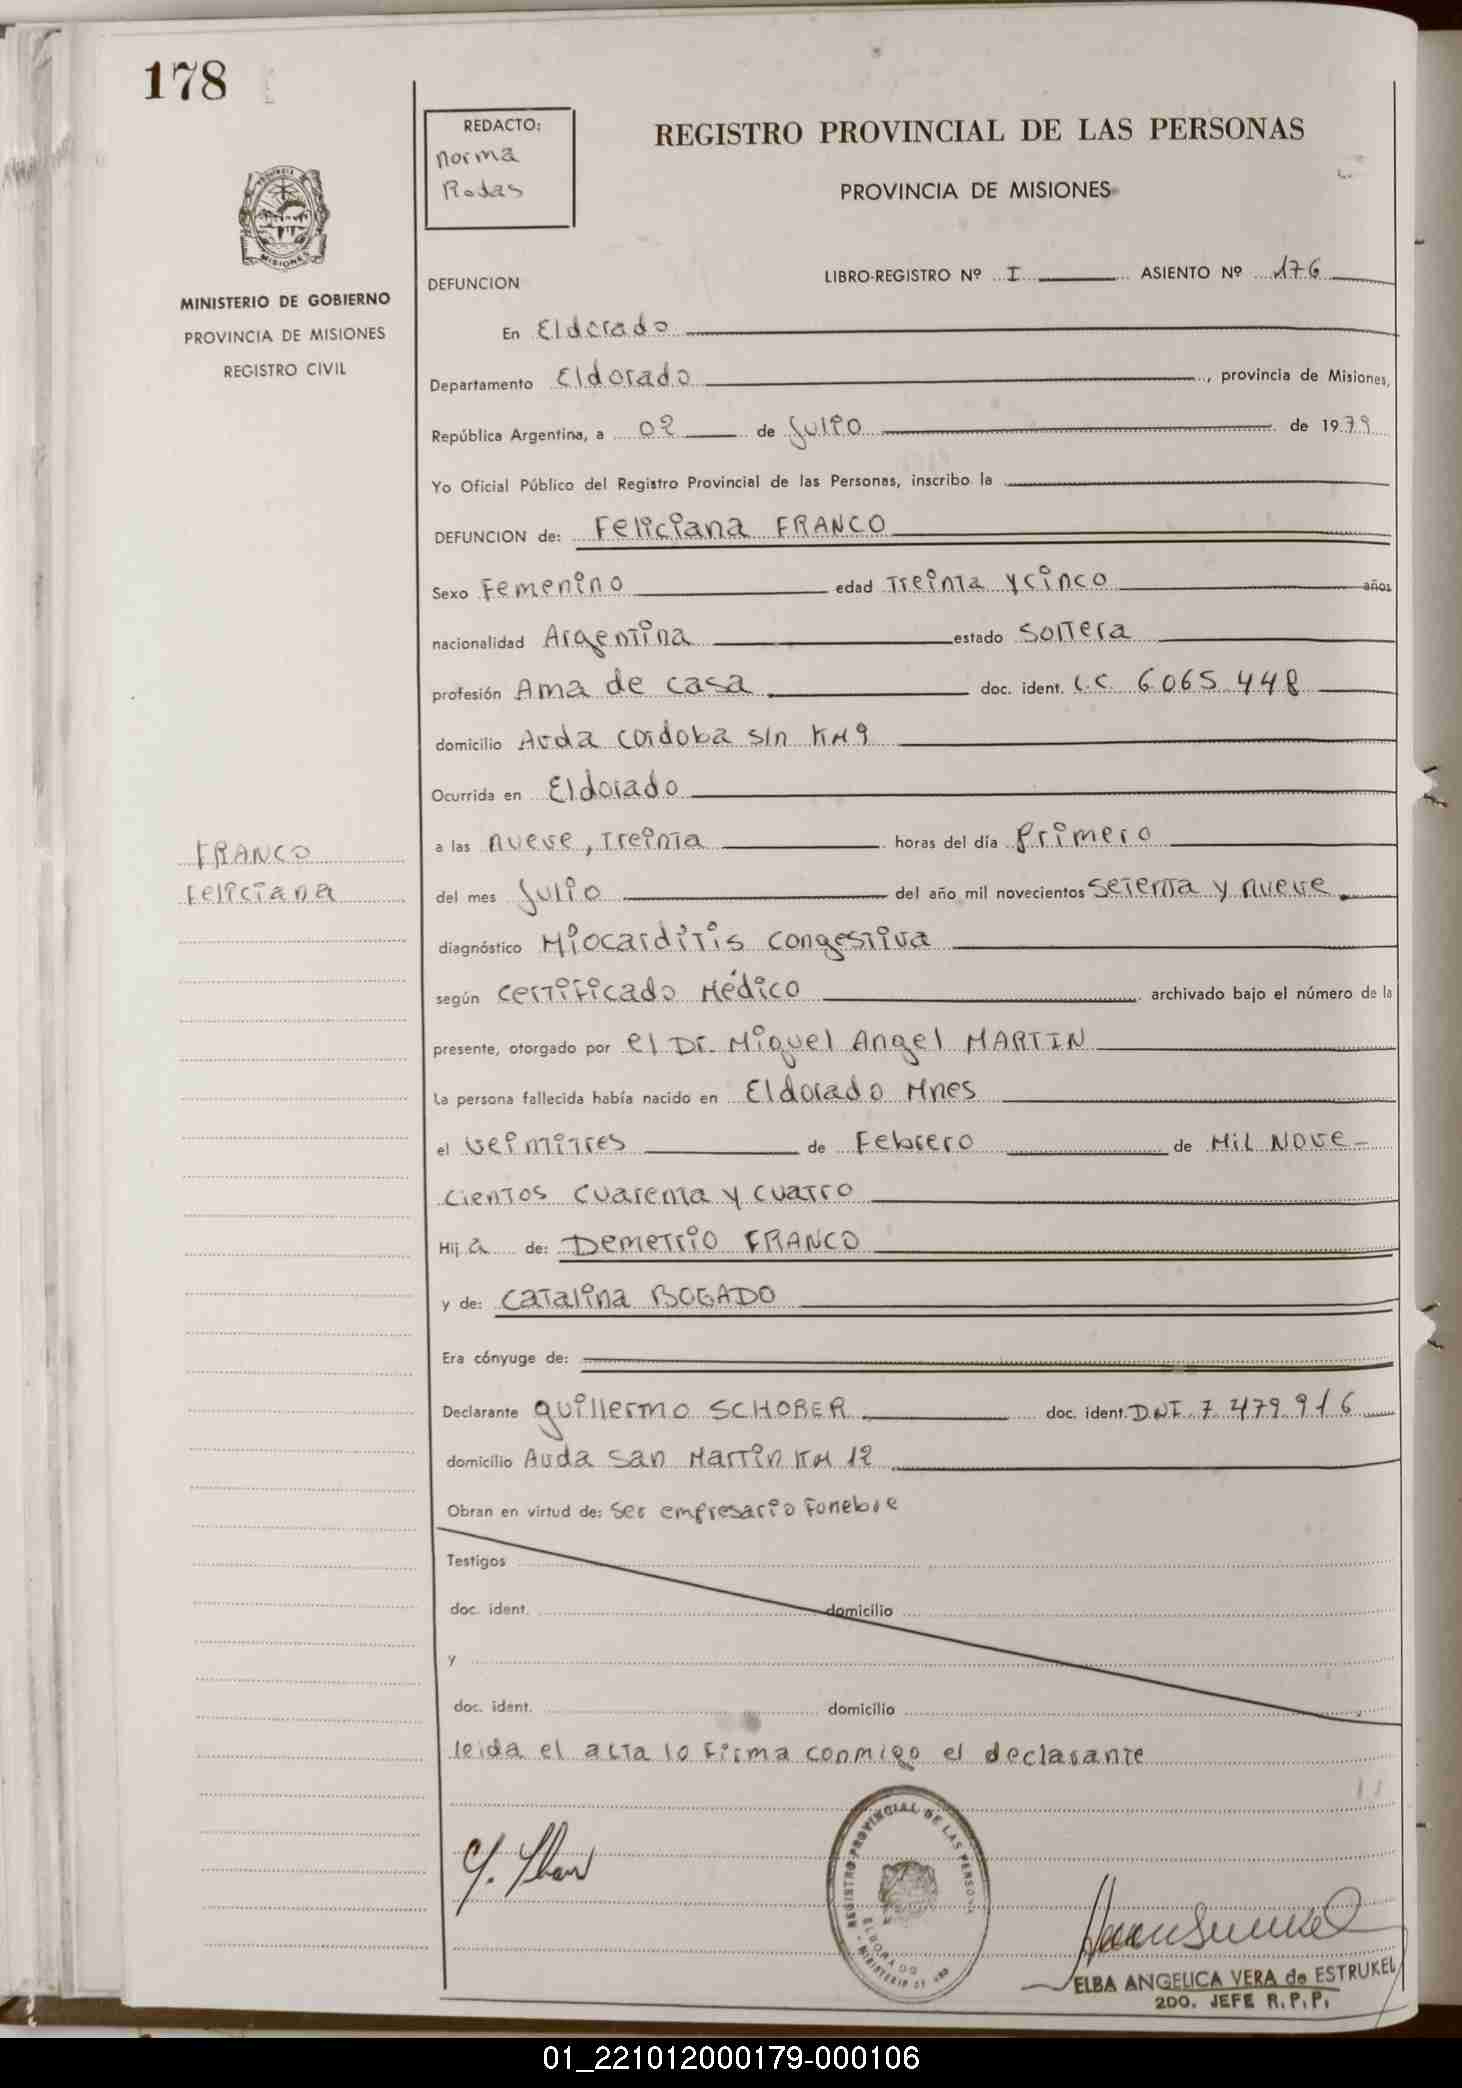 178
REDACTO:
norma
Rodas
REGISTRO PROVINCIAL DE LAS PERSONAS
PROVINCIA DE MISIONES
MISIONES
MINISTERIO DE GOBIERNO
PROVINCIA DE MISIONES
REGISTRO CIVIL
DEFUNCION
LIBRO-REGISTRO Nº I ASIENTO Nº 176
En Eldorado
Departamento Eldorado, provincia de Misiones,
República Argentina, a 02 de Julio de 1979
Yo Oficial Público del Registro Provincial de las Personas, inscribo la
DEFUNCION de: Feliciana FRANCO
Sexo Femenino edad Treinta y cinco años
nacionalidad Argentina estado Soltera
profesión Ama de casa doc. ident. L.C. 6065448
domicilio Avda cordoba s/n KM 9
Ocurrida en Eldorado
a las nueve, Treinta horas del día primero
del mes Julio del año mil novecientos setenta y nueve
FRANCO
Feliciana
diagnóstico Miocarditis congestiva
según certificado Médico archivado bajo el número de la
presente, otorgado por el Dr. Miguel Angel MARTIN
La persona fallecida había nacido en Eldorado Mnes
el veintitres de Febrero de Mil Nove-
cientos cuarenta y cuatro
Hija de: Demetrio FRANCO
y de: Catalina BOGADO
Era cónyuge de:
Declarante Guillermo SCHOBER doc. ident. DNI 7 479 916
domicilio Avda San Martin KM 12
Obran en virtud de: ser empresario Funebre
Testigos
doc. ident. domicilio
y
doc. ident. domicilio
leida el acta lo firma conmigo el declarante
REGISTRO PROVINCIAL DE LAS PERSONAS
ELDORADO
ELBA ANGELICA VERA de ESTRUKEL
2DO. JEFE R.P.P.
01_221012000179-000106